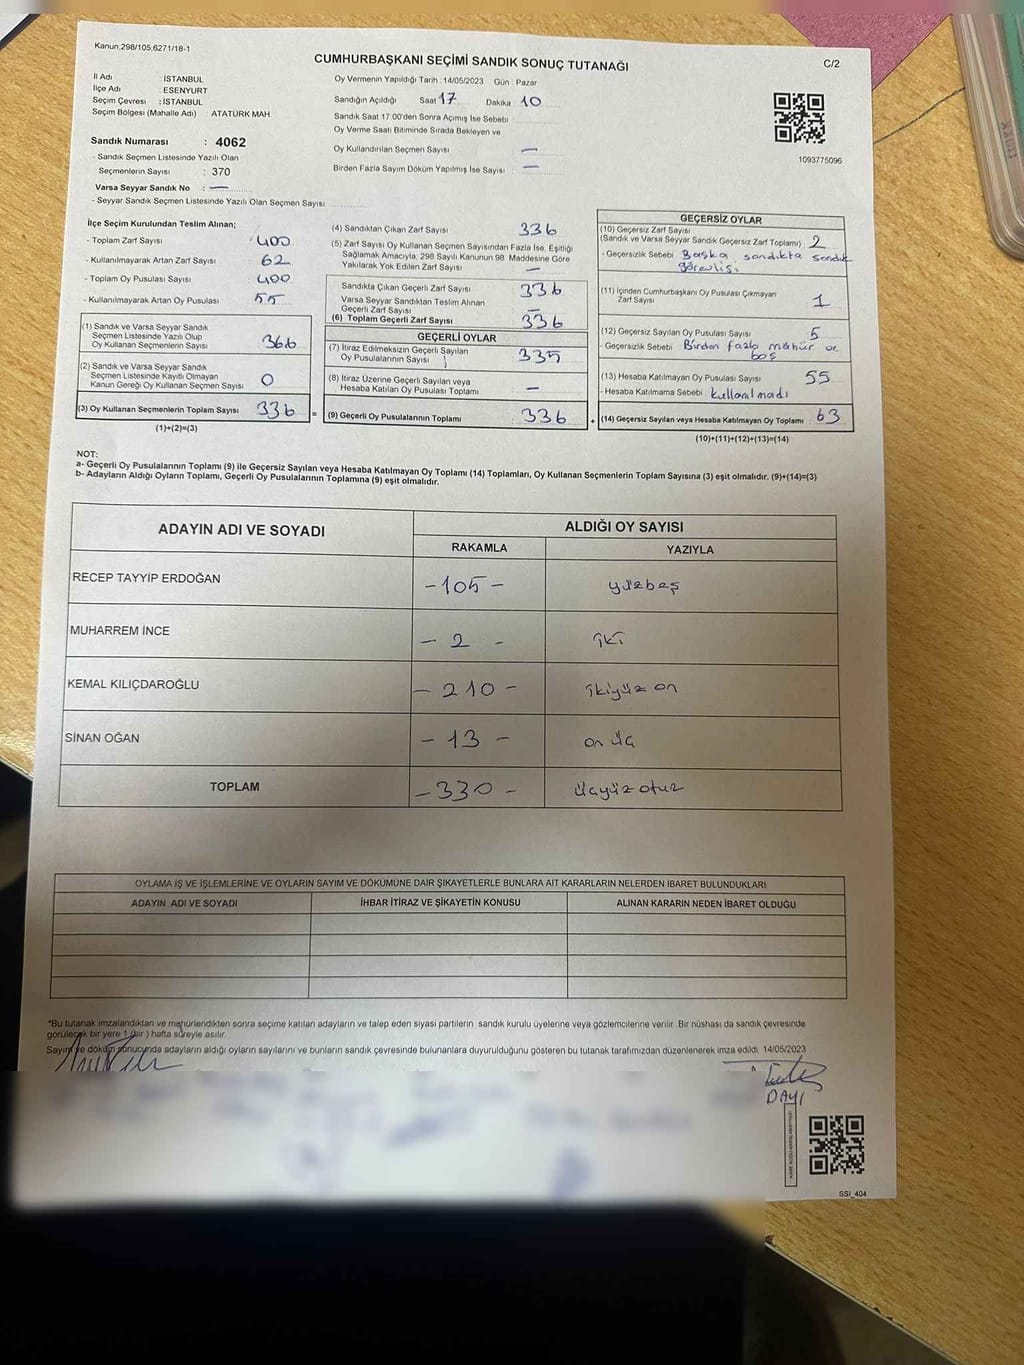 Kanun,298/105,6271/18-1
CUMHURBAŞKANI SEÇİMİ SANDIK SONUÇ TUTANAĞI
C/2
İl Adı : İSTANBUL
İlçe Adı : ESENYURT
Seçim Çevresi : İSTANBUL
Seçim Bölgesi (Mahalle Adı) ATATÜRK MAH
Sandık Numarası : 4062
- Sandık Seçmen Listesinde Yazılı Olan
Seçmenlerin Sayısı : 370
Varsa Seyyar Sandık No : —
- Seyyar Sandık Seçmen Listesinde Yazılı Olan Seçmen Sayısı
Oy Vermenin Yapıldığı Tarih : 14/05/2023 Gün : Pazar
Sandığın Açıldığı Saat 17 Dakika 10
Sandık Saat 17.00'den Sonra Açımış İse Sebebi
Oy Verme Saati Bitiminde Sırada Bekleyen ve
Oy Kullandırılan Seçmen Sayısı —
Birden Fazla Sayım Döküm Yapılmış İse Sayısı —
1093775096
İlçe Seçim Kurulundan Teslim Alınan;
- Toplam Zarf Sayısı 400
- Kullanılmayarak Artan Zarf Sayısı 62
- Toplam Oy Pusulası Sayısı 400
- Kullanılmayarak Artan Oy Pusulası 55
(1) Sandık ve Varsa Seyyar Sandık
Seçmen Listesinde Yazılı Olup
Oy Kullanan Seçmenlerin Sayısı 366
(2) Sandık ve Varsa Seyyar Sandık
Seçmen Listesinde Kayıtlı Olmayan
Kanun Gereği Oy Kullanan Seçmen Sayısı 0
(3) Oy Kullanan Seçmenlerin Toplam Sayısı 336 =
(1)+(2)=(3)
(4) Sandıktan Çıkan Zarf Sayısı 336
(5) Zarf Sayısı Oy Kullanan Seçmen Sayısından Fazla İse, Eşitliği
Sağlamak Amacıyla, 298 Sayılı Kanunun 98. Maddesine Göre
Yakılarak Yok Edilen Zarf Sayısı —
Sandıkta Çıkan Geçerli Zarf Sayısı 336
Varsa Seyyar Sandıktan Teslim Alınan
Geçerli Zarf Sayısı —
(6) Toplam Geçerli Zarf Sayısı 336
GEÇERLİ OYLAR
(7) İtiraz Edilmeksizin Geçerli Sayılan
Oy Pusulalarının Sayısı 335
(8) İtiraz Üzerine Geçerli Sayılan veya
Hesaba Katılan Oy Pusulası Toplamı —
(9) Geçerli Oy Pusulalarının Toplamı 336 +
GEÇERSİZ OYLAR
(10) Geçersiz Zarf Sayısı
(Sandık ve Varsa Seyyar Sandık Geçersiz Zarf Toplamı) 2
- Geçersizlik Sebebi Başka sandıkta sandık
görevlisi
(11) İçinden Cumhurbaşkanı Oy Pusulası Çıkmayan
Zarf Sayısı 1
(12) Geçersiz Sayılan Oy Pusulası Sayısı 5
- Geçersizlik Sebebi Birden fazla mühür ve
boş
(13) Hesaba Katılmayan Oy Pusulası Sayısı 55
- Hesaba Katılmama Sebebi kullanılmadı
(14) Geçersiz Sayılan veya Hesaba Katılmayan Oy Toplamı 63
(10)+(11)+(12)+(13)=(14)
NOT:
a- Geçerli Oy Pusulalarının Toplamı (9) ile Geçersiz Sayılan veya Hesaba Katılmayan Oy Toplamı (14) Toplamları, Oy Kullanan Seçmenlerin Toplam Sayısına (3) eşit olmalıdır. (9)+(14)=(3)
b- Adayların Aldığı Oyların Toplamı, Geçerli Oy Pusulalarının Toplamına (9) eşit olmalıdır.
ADAYIN ADI VE SOYADI ALDIĞI OY SAYISI
RAKAMLA YAZIYLA
RECEP TAYYİP ERDOĞAN -105- yüzbeş
MUHARREM İNCE - 2 - iki
KEMAL KILIÇDAROĞLU - 210 - ikiyüz on
SİNAN OĞAN - 13 - on üç
TOPLAM - 330 - üçyüz otuz
OYLAMA İŞ VE İŞLEMLERİNE VE OYLARIN SAYIM VE DÖKÜMÜNE DAİR ŞİKAYETLERLE BUNLARA AİT KARARLARIN NELERDEN İBARET BULUNDUKLARI
ADAYIN ADI VE SOYADI İHBAR İTİRAZ VE ŞİKAYETİN KONUSU ALINAN KARARIN NEDEN İBARET OLDUĞU
*Bu tutanak imzalandıktan ve mühürlendikten sonra seçime katılan adayların ve talep eden siyasi partilerin sandık kurulu üyelerine veya gözlemcilerine verilir. Bir nüshası da sandık çevresinde
görülecek bir yere 1 (bir ) hafta süreyle asılır.
Sayım ve döküm sonucunda adayların aldığı oyların sayılarını ve bunların sandık çevresinde bulunanlara duyurulduğunu gösteren bu tutanak tarafımızdan düzenlenerek imza edildi. 14/05/2023
DAYI
SSI_404